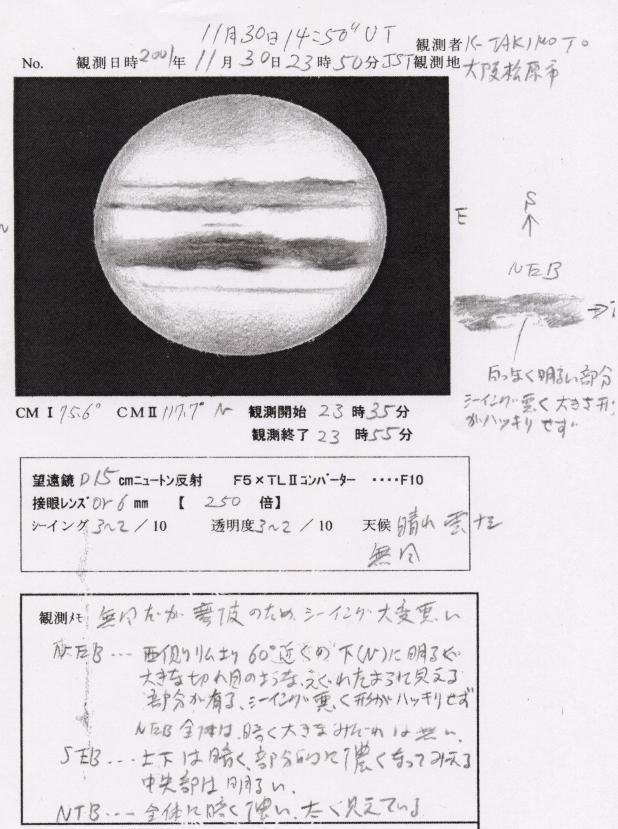 11月30日14:50m UT
観測者 K-TAKIMOTO
No. 観測日時 2001年 11月30日23時50分 JST 観測地 大阪松原市
E
S
↑
NEB
白っぽく明るい部分
シーイング悪く大きさ形
がハッキリせず
CM I 75.6° CM II 117.7° N 観測開始 23時35分
観測終了 23時55分
望遠鏡 D15cmニュートン反射 F5×TLⅡコンバーター ‥‥F10
接眼レンズ Or6mm 【 250 倍】
シーイング 3~2/10 透明度 3~2/10 天候 晴れ 雲ナシ
無風
観測メモ 無風だが のため シーイング大変悪い
NEB --- 西側リムより60°近くの下(N)に明るく
大きな切れ目のような、えぐれたように見える
部分が有る、シーイング悪く形がハッキリせず
NEB全体は、暗く大きなみだれは無い、
SEB --- 上下は暗く、部分的に濃くなってみえる
中央部は明るい、
NTB --- 全体に暗く濃い、太く見えている